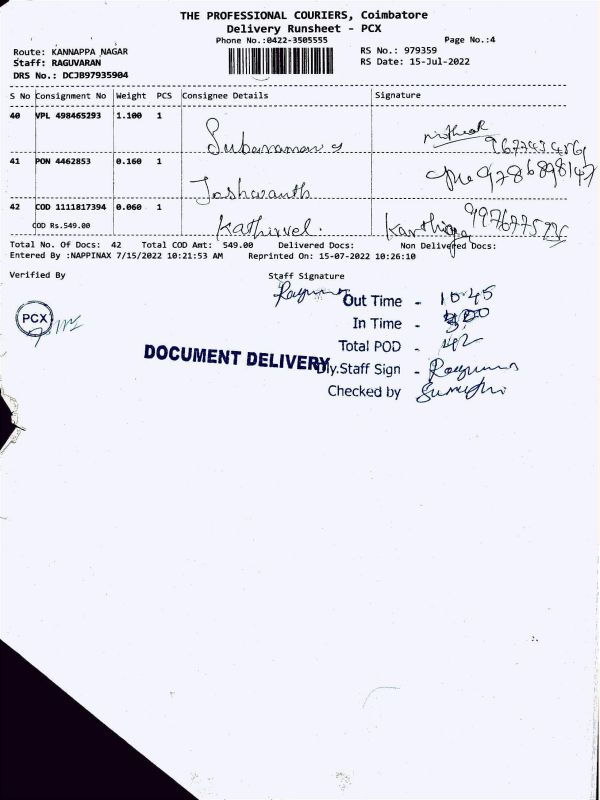 THE PROFESSIONAL COURIERS, Coimbatore
Delivery Runsheet - PCX
Phone No.:0422-3505555 Page No.:4
Route: KANNAPPA NAGAR RS No.: 979359
Staff: RAGUVARAN RS Date: 15-Jul-2022
DRS No.: DCJB97935904
S No Consignment No Weight PCS Consignee Details Signature
40 VPL 498465293 1.100 1
41 PON 4462853 0.160 1 9786898147
Joshwanth
42 COD 1111817394 0.060 1
COD Rs.549.00 Kathirvel.
Total No. Of Docs: 42 Total COD Amt: 549.00 Delivered Docs: Non Delivered Docs:
Entered By :NAPPINAX 7/15/2022 10:21:53 AM Reprinted On: 15-07-2022 10:26:10
Verified By Staff Signature
Out Time - 10.45
PCX
In Time -
Total POD - 42
DOCUMENT DELIVERY
Dly.Staff Sign -
Checked by